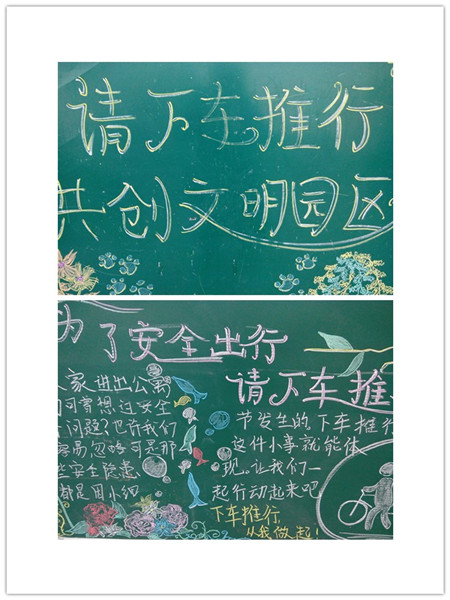 请下车推行
共创文明园区
为了安全出行
请下车推
大家进出公寓
时可曾想过安全
问题?也许我们
容易忽略可是那
些安全隐患
都是因小细
节发生的,下车推行
这件小事就能体
现。让我们一
起行动起来吧
下车推行
从我做起!